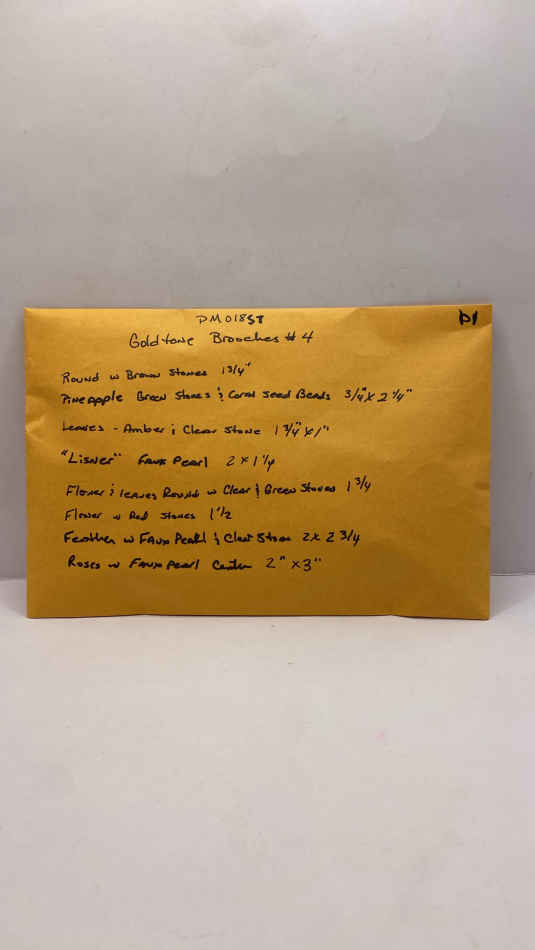 DM018ST
D1
Goldtone Brooches #4
Round w Brown Stones 1 3/4"
Pineapple Green Stones & Coral Seed Beads 3/4" x 2 1/4"
Leaves - Amber & Clear Stone 1 3/4" x 1"
"Lisner" Faux Pearl 2 x 1 1/4
Flower & leaves Round w Clear & Green Stones 1 3/4
Flower w Red Stones 1 1/2
Feather w Faux Pearl & Clear Stone 2 x 2 3/4
Roses w Faux Pearl Center 2" x 3"